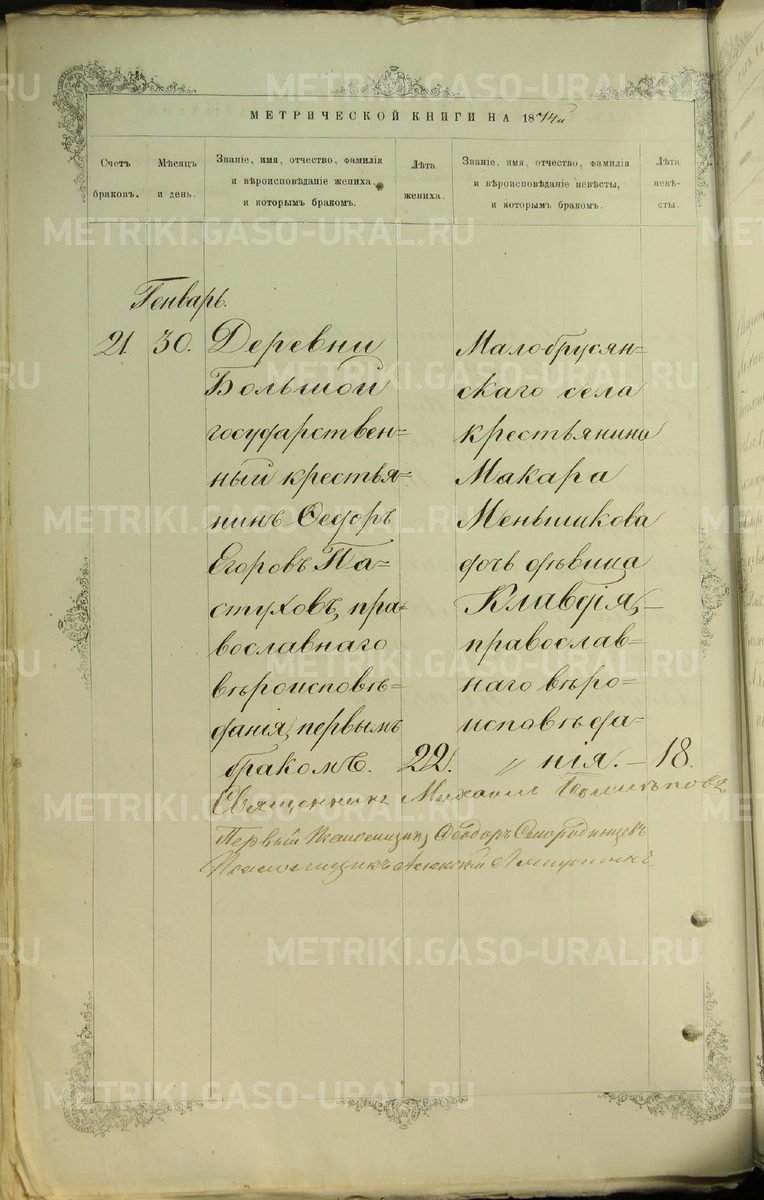 МЕТРИЧЕСКОЙ КНИГИ НА 1874й
Счетъ браковъ.
Мѣсяцъ и день.
Званіе, имя, отчество, фамилія
и вѣроисповѣданіе жениха,
и которымъ бракомъ.
Лѣта жениха.
Званіе, имя, отчество, фамилія
и вѣроисповѣданіе невѣсты,
и которымъ бракомъ.
Лѣта невѣ-
сты.
Генварь.
21. 30. Деревни
Большой
государствен=
ный крестья=
нинъ Ѳедоръ
Егоровъ Па=
стуховъ, пра=
вославнаго
вѣроисповѣ=
данія, первымъ
бракомъ. 22.
Малобрусян=
скаго села
крестьянина
Макара
Меньшикова
дочь дѣвица
Клавдія,
православ=
наго вѣро=
исповѣда=
нія. — 18.
Священникъ Михаилъ
Первый Псаломщикъ Ѳеодоръ
Псаломщикъ
METRIKI.GASO-URAL.RU